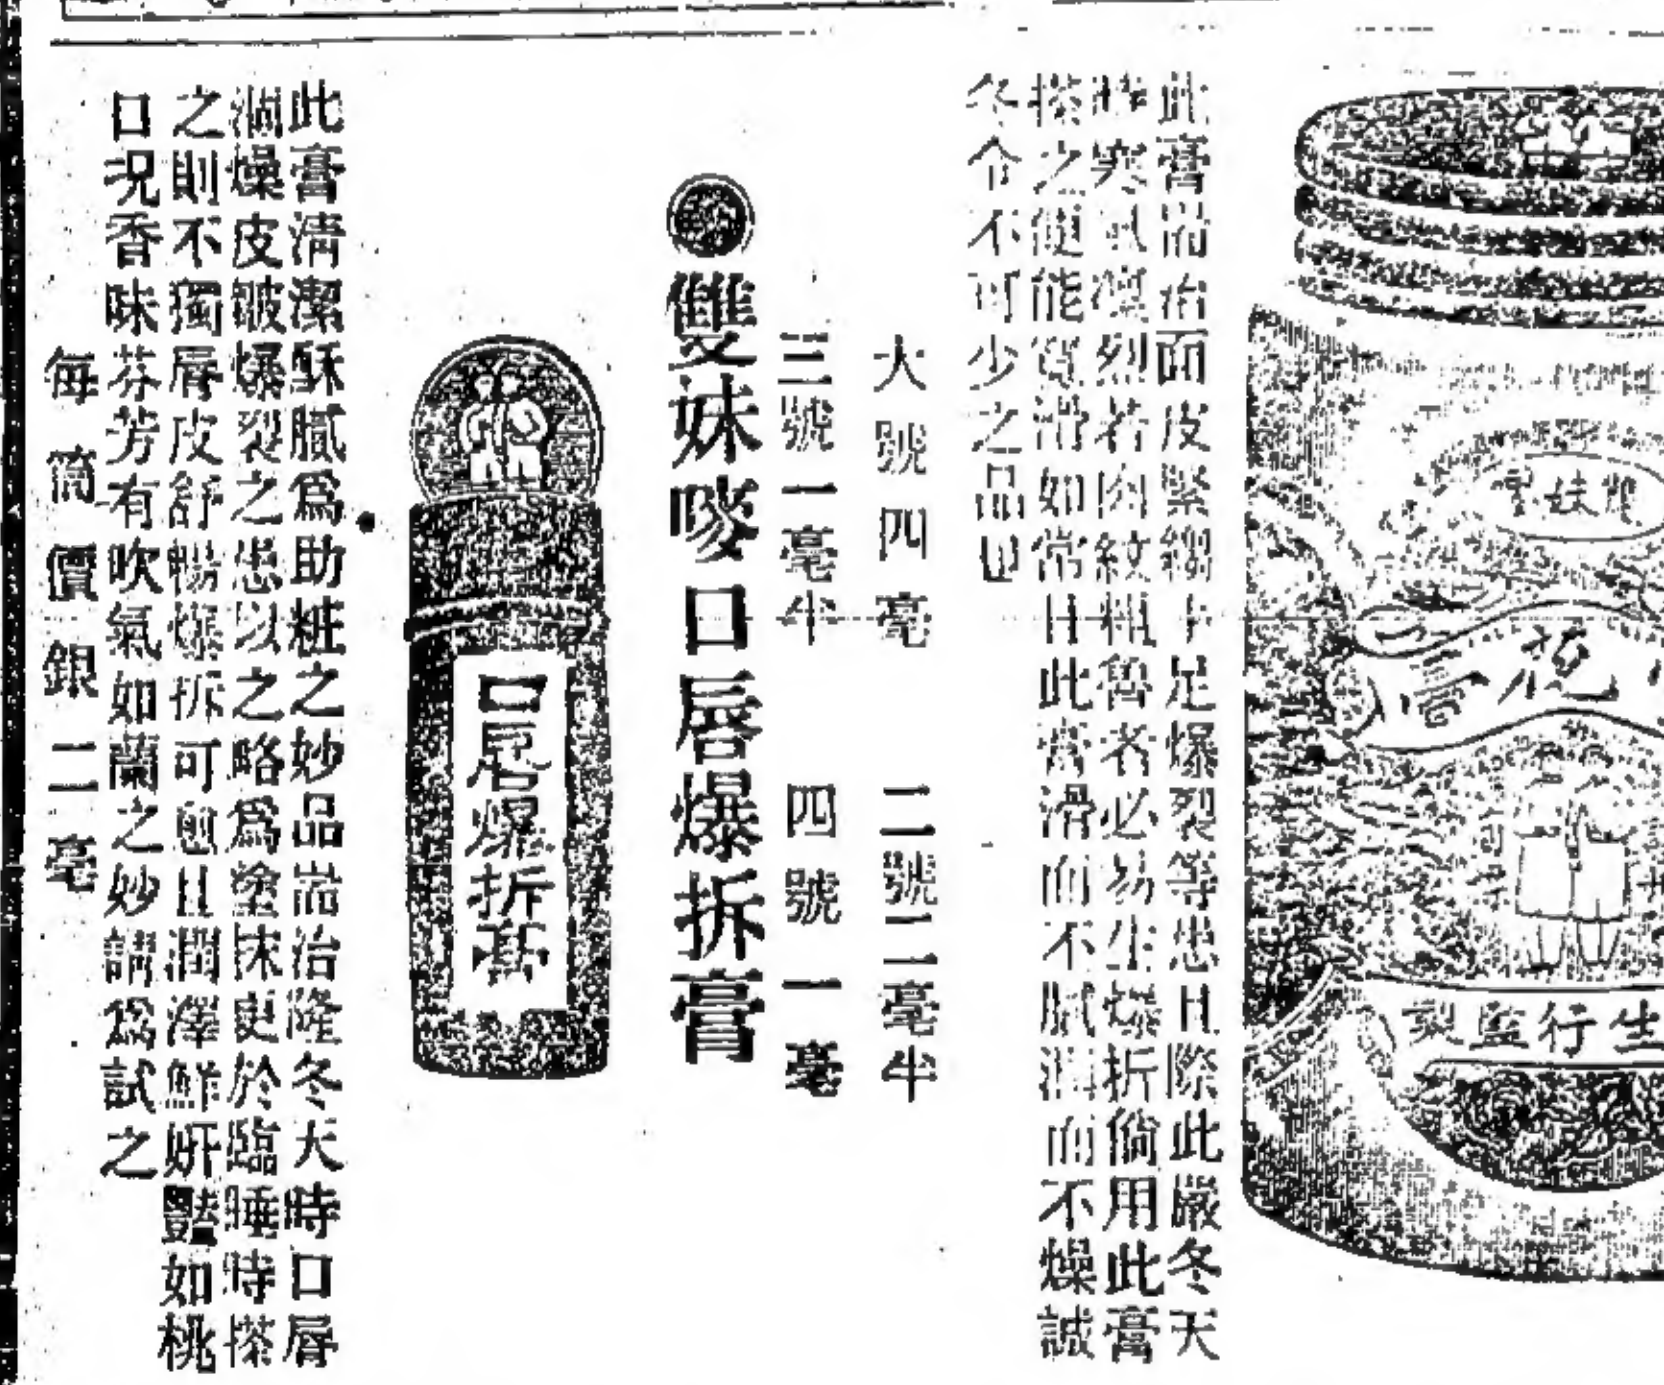 雙妹
監製
此膏耑治面皮緊縐手足爆裂等患且際此嚴冬天
時寒風凜烈若肉紋粗魯者必易生爆折倘用此膏
搽之便能寬滑如常且此膏滑而不膩潤而不燥誠
冬令不可少之品也
大號四毫
二號二毫半
三號一毫半
四號一毫
雙妹嘜口唇爆拆膏
口唇爆拆膏
此膏清潔酥膩爲助粧之妙品耑治隆冬天時口唇
涸燥皮皺爆裂之患以之略爲塗抹更於臨睡時搽
之則不獨唇皮舒暢爆拆可愈且潤澤鮮妍豔如桃
口況香味芬芳有吹氣如蘭之妙請爲試之
每筒價銀二毫